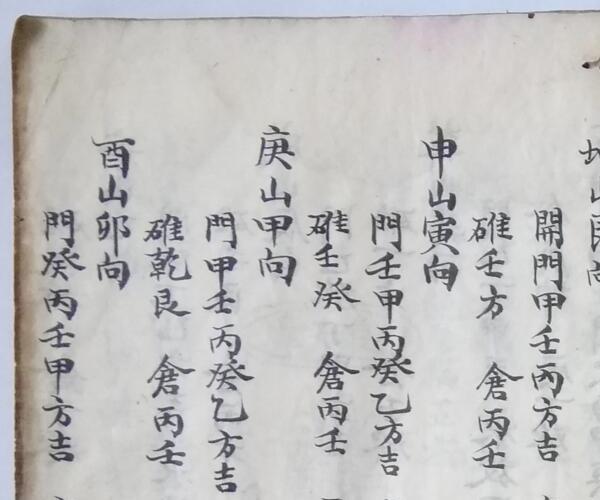 山艮向
開門甲壬丙方吉
碓壬方 倉丙壬
申山寅向
門壬甲丙癸乙方吉
碓壬癸 倉丙壬
庚山甲向
門甲壬丙癸乙方吉
碓乾艮 倉丙壬
酉山卯向
門癸丙壬甲方吉